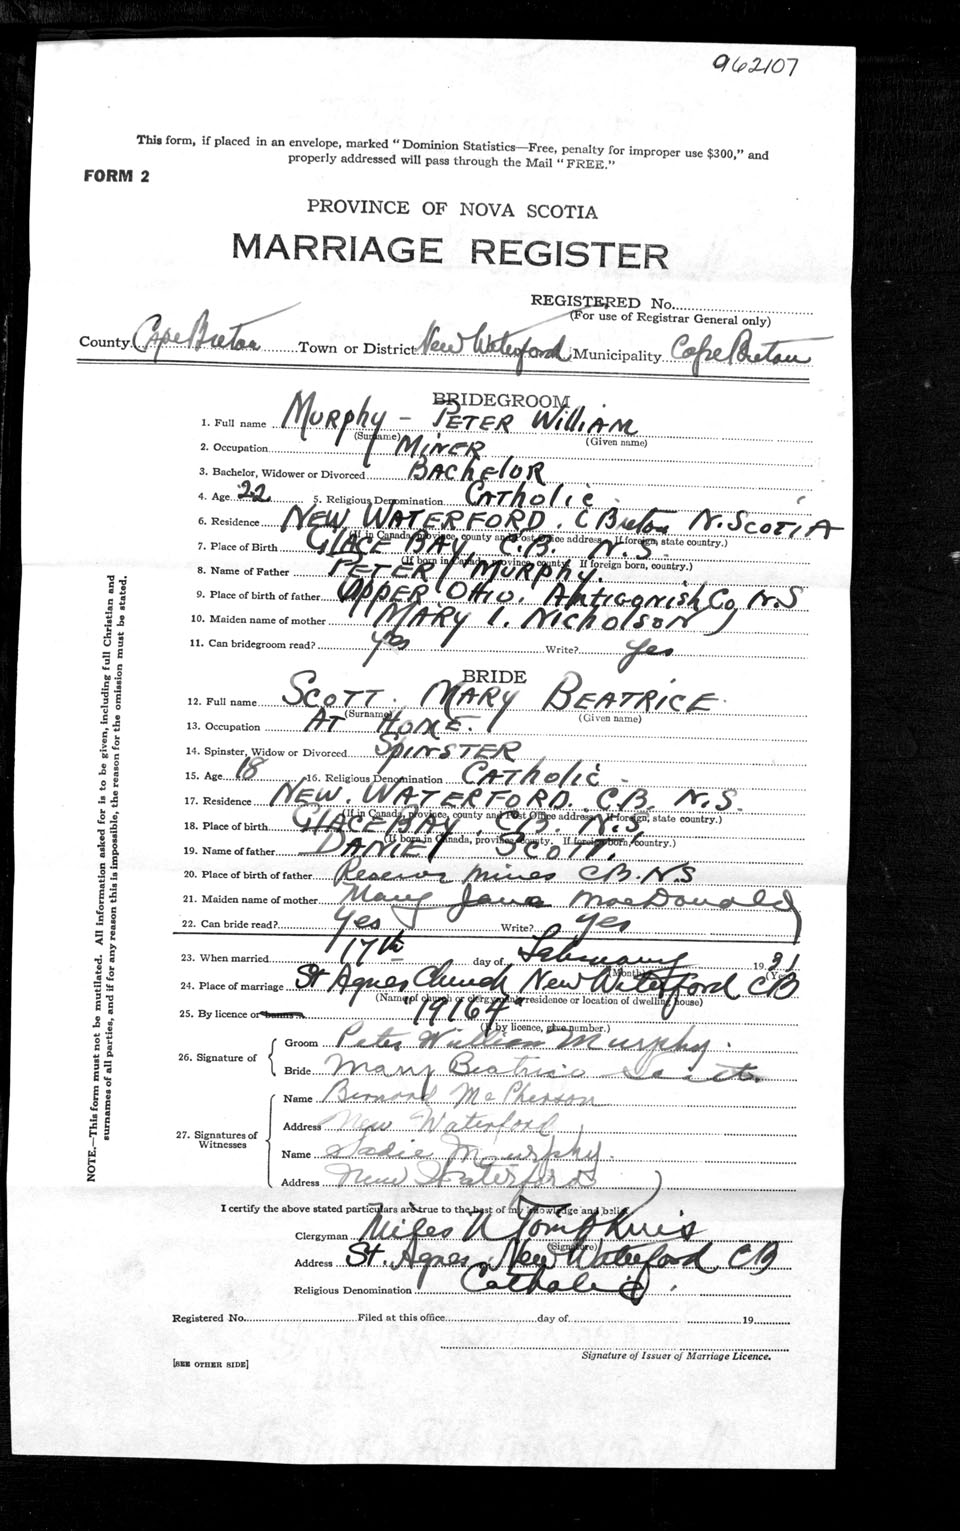 962107
This form, if placed in an envelope, marked "Dominion Statistics—Free, penalty for improper use $300," and
properly addressed will pass through the Mail "FREE."
FORM 2
PROVINCE OF NOVA SCOTIA
MARRIAGE REGISTER
REGISTERED No.
(For use of Registrar General only)
County Cape Breton Town or District New Waterford Municipality Cape Breton
BRIDEGROOM
1. Full name Murphy - Peter William
(Surname) (Given name)
2. Occupation Miner
3. Bachelor, Widower or Divorced Bachelor
4. Age 22 5. Religious Denomination Catholic
6. Residence New Waterford. C Breton N. Scotia
(If in Canada, province, county and Post Office address. If foreign, state country.)
7. Place of Birth Glace Bay, C.B. N.S.
(If born in Canada, province, county. If foreign born, country.)
8. Name of Father Peter Murphy.
9. Place of birth of father Upper Ohio. Antigonish Co, N.S
10. Maiden name of mother Mary I. Nicholson
11. Can bridegroom read? yes Write? yes
BRIDE
12. Full name Scott. Mary Beatrice
(Surname) (Given name)
13. Occupation At Home.
14. Spinster, Widow or Divorced Spinster
15. Age 18 16. Religious Denomination Catholic
17. Residence New. Waterford. C.B. N.S.
(If in Canada, province, county and Post Office address. If foreign, state country.)
18. Place of birth Glace Bay. C.B. N.S.
(If born in Canada, province, county. If foreign born, country.)
19. Name of father Daniel Scott.
20. Place of birth of father Reserve Mines CB. N.S
21. Maiden name of mother Mary Jane MacDonald
22. Can bride read? Yes Write? Yes
23. When married 17th day of February 19
(Month) (Year)
24. Place of marriage St Agnes Church New Waterford CB
(Name of church or clergyman's residence or location of dwelling house)
25. By licence or banns "19164"
(If by licence, give number.)
26. Signature of
Groom Peter William Murphy.
Bride Mary Beatrice Scott.
27. Signatures of Witnesses
Name Bernard McPherson
Address New Waterford
Name Sadie Murphy.
Address New Waterford
I certify the above stated particulars are true to the best of my knowledge and belief.
Clergyman Miles N Tompkins
(Signature)
Address St. Agnes, New Waterford CB
Religious Denomination Catholic
Registered No. Filed at this office day of 19
Signature of Issuer of Marriage Licence.
[SEE OTHER SIDE]
NOTE.—This form must not be mutilated. All information asked for is to be given, including full Christian and
surnames of all parties, and if for any reason this is impossible, the reason for the omission must be stated.